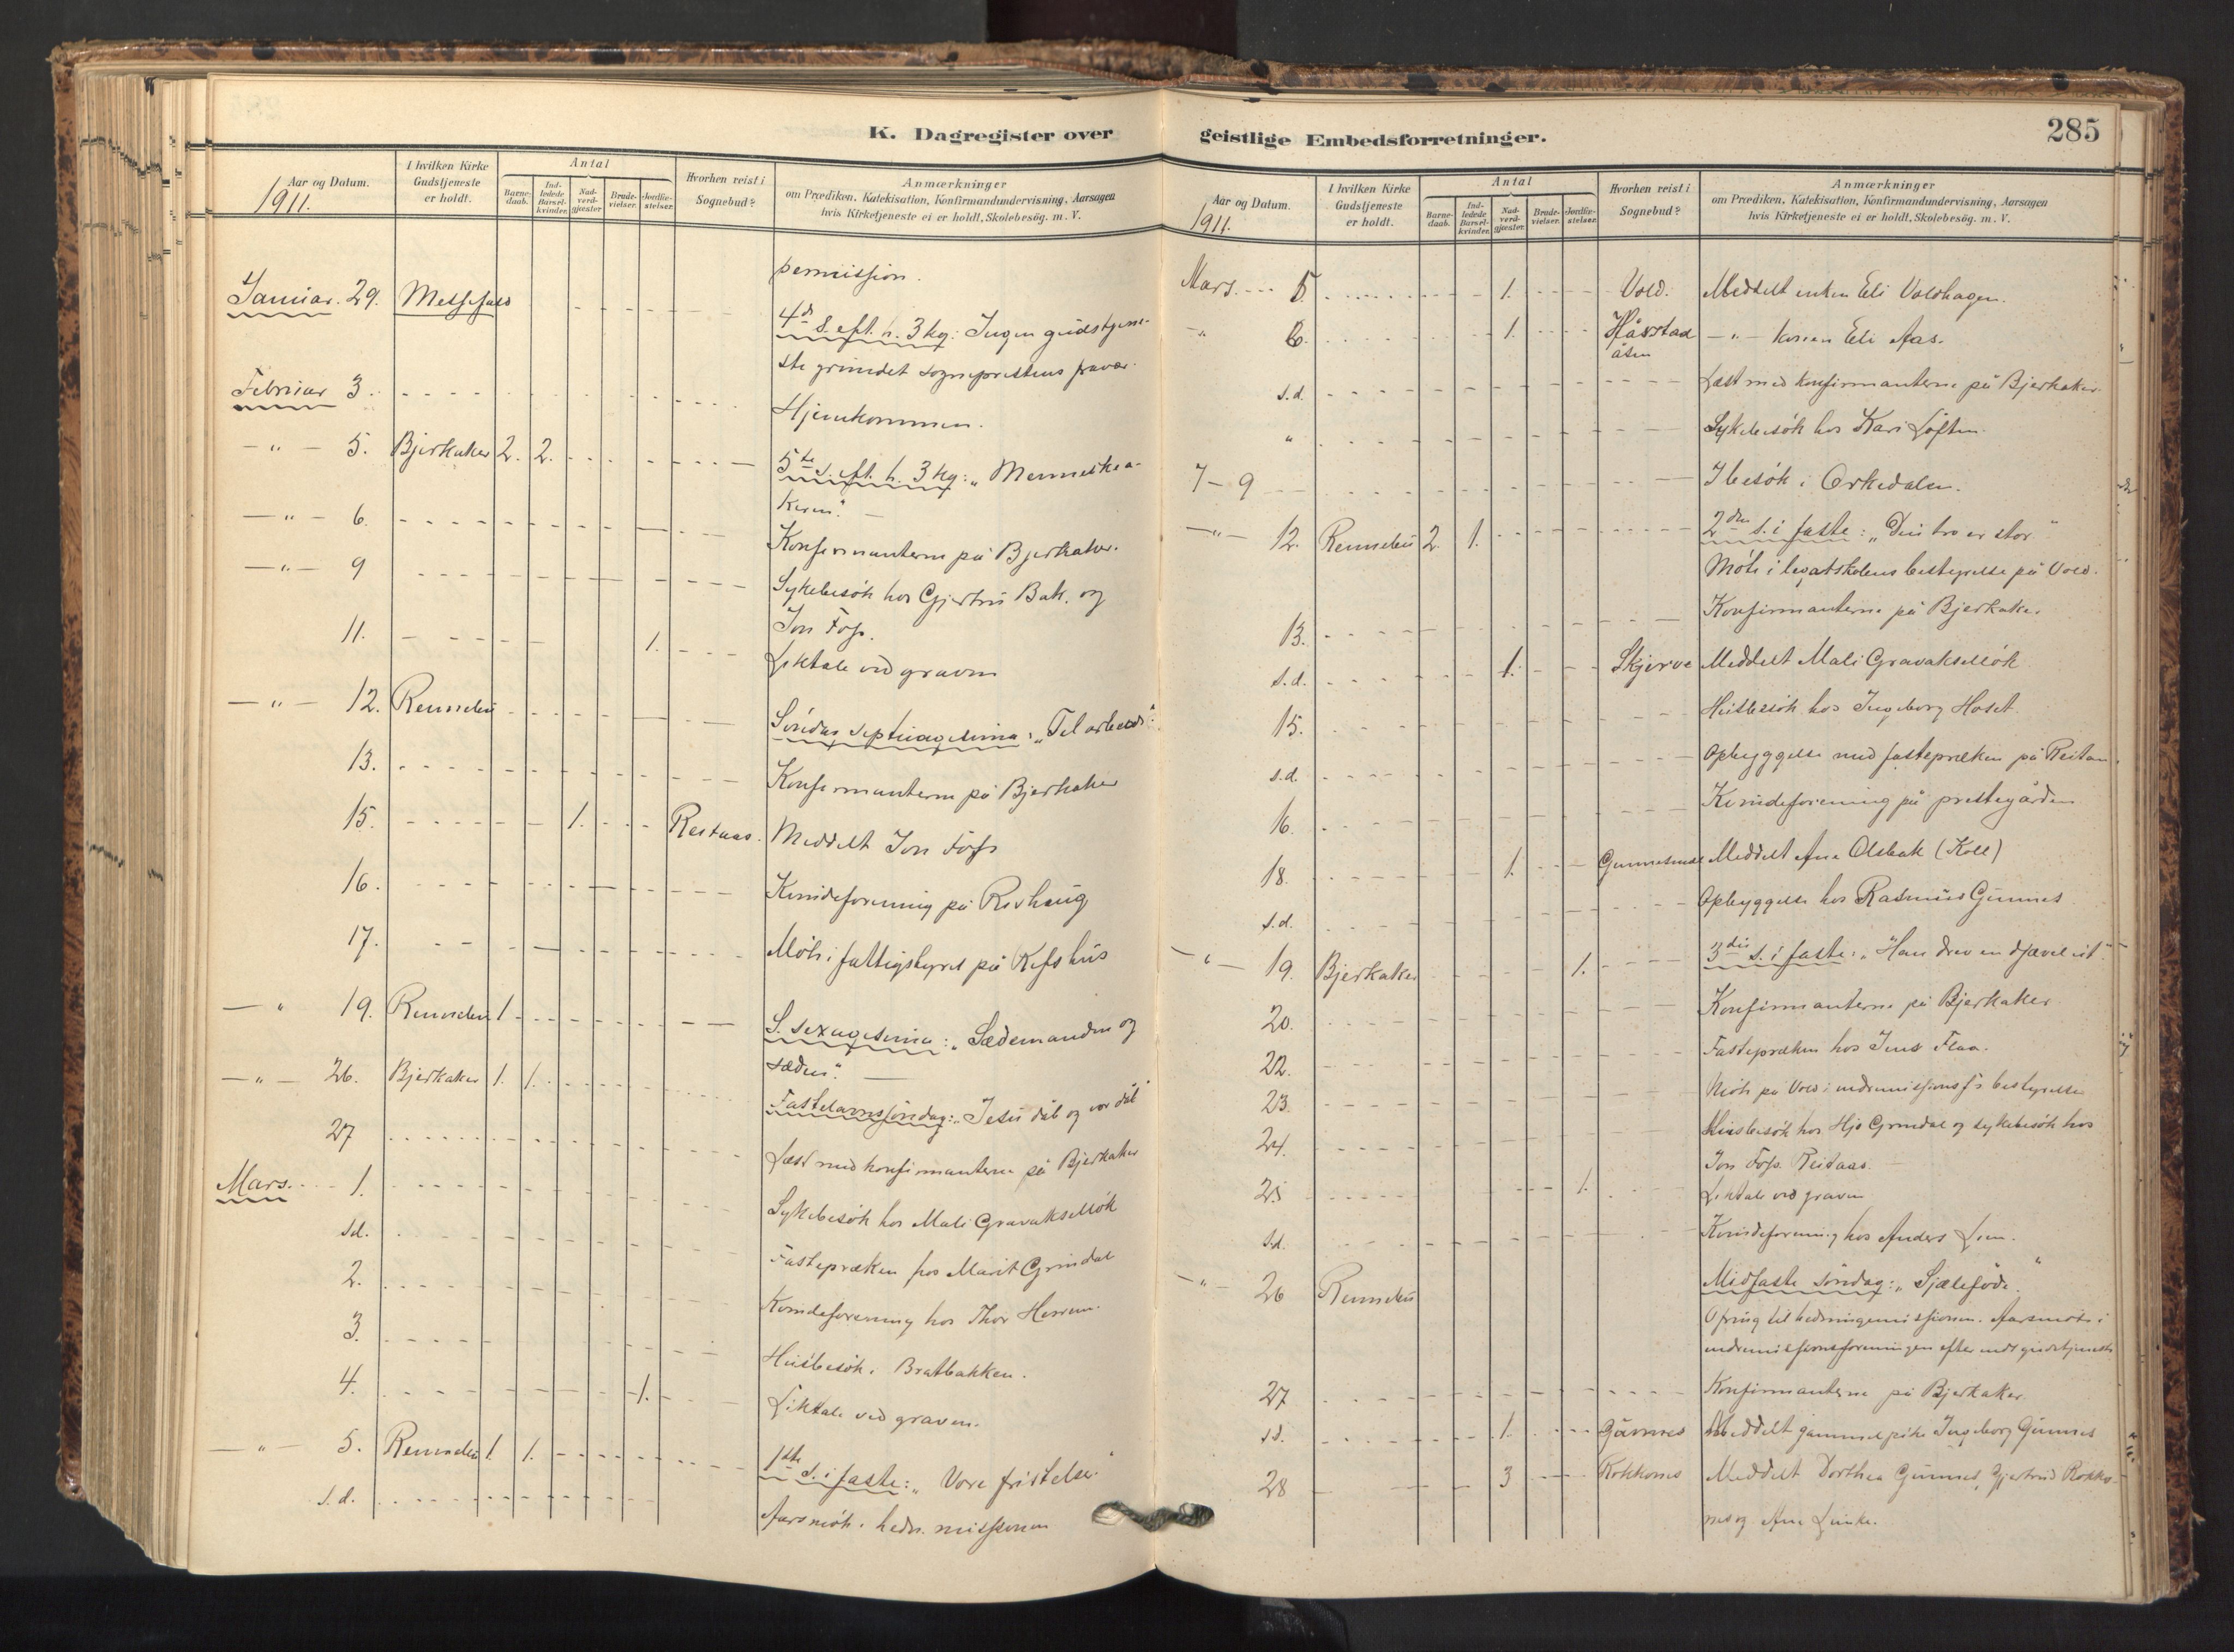 K. Dagregister over
Aar og Datum.
1911.
I hvilken Kirke
Gudstjeneste
er holdt.
Antal
Barne-
daab.
Ind-
ledede
Barsel-
kvinder.
Nad-
verd-
gjæster.
Brude-
vielser.
Jordfæ-
stelser.
Hvorhen reist i
Sognebud?
Anmærkninger
om Prædiken, Katekisation, Konfirmandundervisning, Aarsagen
hvis Kirketjeneste ei er holdt, Skolebesög. m. V.
permission.
Januar. 29. Messefald
4de S. eft. h. 3 kg: Ingen gudstjene-
ste grundet sogneprestens fravær.
Februar 3. Hjemkommen.
-"- 5. Bjerkaker 2. 2. 5te S. eft. h. 3 kg: "Menneskea-
keren".
-"- 6. Konfirmanterne på Bjerkaker.
-"- 9 Sykebesök hos Gjertru Bak. og
Jon Foss.
11. 1. Liktale ved graven
-"- 12. Rennebu Söndag septuagesima: "Til arbeid".
13. Konfirmanterne på Bjerkaker
15. 1. Reitaas. Meddelt Jon Foss
16. Kvindeforening på Revhaug
17. Möte i fattigstyret på Kefshus
-"- 19. Rennebu 1 S. sexagesima: "Sædemanden og
sæden".
-"- 26. Bjerkaker 1. 1. Fastelavnssöndag: "Jesu dåb og vor dåb"
27 Læst med konfirmanterne på Bjerkaker
Mars. 1. Sykebesök hos Mali Gravaksellök
s.d. Fastepræken hos Marit Grindal
2. Kvindeforening hos Thor Herrem.
3. Husbesök i Bratbakken.
4. 1. Liktale ved graven.
-"- 5. Rennebu 1. 1. 1ste S. i faste: "Vore fristelser"
s.d. Aarsmöte i hedn. missionen
geistlige Embedsforretninger.
285
Aar og Datum.
1911.
I hvilken Kirke
Gudstjeneste
er holdt.
Antal
Barne-
daab.
Ind-
ledede
Barsel-
kvinder.
Nad-
verd-
gjæster.
Brude-
vielser.
Jordfæ-
stelser.
Hvorhen reist i
Sognebud?
Anmærkninger
om Prædiken, Katekisation, Konfirmandundervisning, Aarsagen
hvis Kirketjeneste ei er holdt, Skolebesög. m. V.
Mars. 5. 1. Vold. Meddelt enken Eli Voldhagen.
-"- 6. 1. Hårstad
åsen -"- konen Eli Aas.
s.d. Læst med konfirmanterne på Bjerkaker.
" Sykebesök hos Kari Löften.
7-9 I besök i Orkedalen.
-"- 12. Rennebu 2. 1. 2den S. i faste: "Din tro er stor"
Möte i legatskolens bestyrelse på Vold.
13. Konfirmanterne på Bjerkaker
s.d. 1. Skjerve Meddelt Mali Gravaksellök
15. Husbesök hos Ingeborg Hoset.
s.d. Opbyggelse med fastepræken på Reitan.
16. Kvindeforening på prestegården
18. 1. Meddelt Ane Olsbak (Koll)
s.d. Opbyggelse hos Rasmus Gunnes
-"- 19. Bjerkaker 1. 3die S. i faste: "Han drev en djævel ut".
20. Konfirmanterne på Bjerkaker
22. Fastepræken hos Jens Flaa.
23. Möte på Vold i indremissionsf's bestyrelse
24. Husbesök hos Hjs Grindal og sykebesök hos
Jon Foss. Reitaas.
25 1. Liktale ved graven
s.d. Kvindeforening hos Anders Lien.
-"- 26 Rennebu Midfaste söndag: "Sjæleföde".
Ofring til hedningemissionen. Aarsmöte i
indremissionsforeningen efter endt gudstjeneste
27 Konfirmanterne på Bjerkaker
s.d. 1. Gunnes Meddelt gammel pike Ingeborg Gunnes
28 3 Rokkones Meddelt Dorthea Gunnes, Gjertrud Rokko-
nes og Ane Lunke.